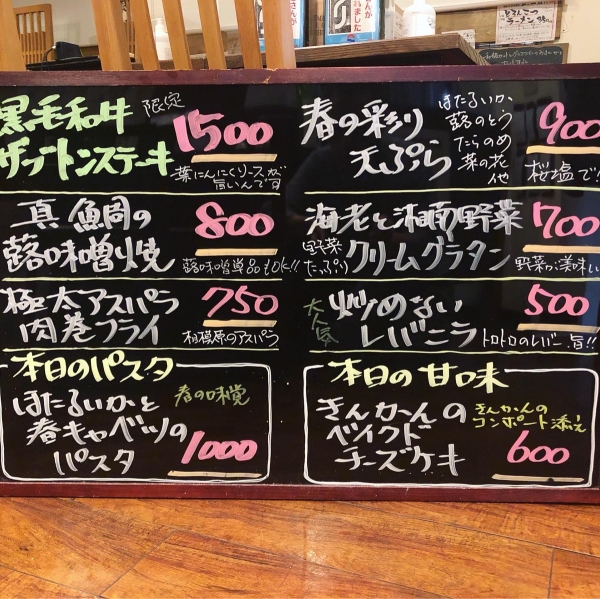 さんが
れました
んか
とろんこつ
ラーメン
黒毛和牛 限定
ザブトンステーキ
1500
葉にんにくソースが
旨いんです
真鯛の
蕗味噌焼
800
蕗味噌単品もOK!!
極太アスパラ
肉巻フライ
750
相模原のアスパラ
本日のパスタ
ほたるいかと
春キャベツの
パスタ
春の味覚
1000
春の彩り
天ぷら
ほたるいか
蕗のとう
たらのめ
菜の花
他
900
桜塩で!
海老と湘南野菜
クリームグラタン
野菜
たっぷり
700
野菜が美味しい
大人気
炒めない
レバニラ
500
トロトロのレバー旨!!
本日の甘味
きんかんの
ベイクド
チーズケーキ
きんかんの
コンポート添え
600